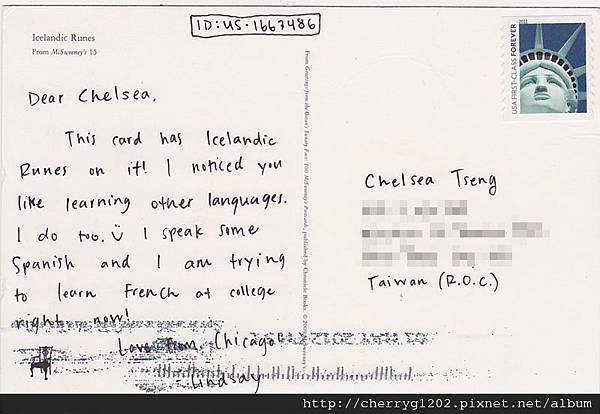 ID: US-1667486
Icelandic Runes
From McSweeney's 15
2011
USA FIRST-CLASS FOREVER
Dear Chelsea,
This card has Icelandic
Runes on it! I noticed you
like learning other languages.
I do too. I speak some
Spanish and I am trying
to learn French at college
right now!
Love from, Chicago
- Lindsay
From Greetings from the Ocean's Sweaty Face: 100 McSweeney's Postcards, published by Chronicle Books.
Chelsea Tseng
Taiwan (R.O.C.)
http://cherryg1202.pixnet.net/album